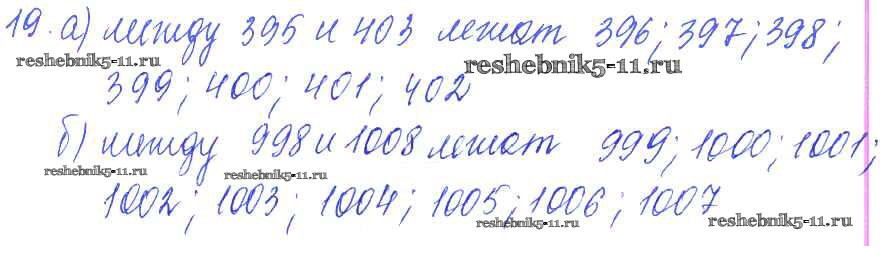 19. а) между 395 и 403 лежат 396; 397; 398;
reshebnik5-11.ru
reshebnik5-11.ru
399; 400; 401; 402
б) между 998 и 1008 лежат 999; 1000; 1001;
reshebnik5-11.ru
reshebnik5-11.ru
1002; 1003; 1004; 1005; 1006; 1007
reshebnik5-11.ru
reshebnik5-11.ru